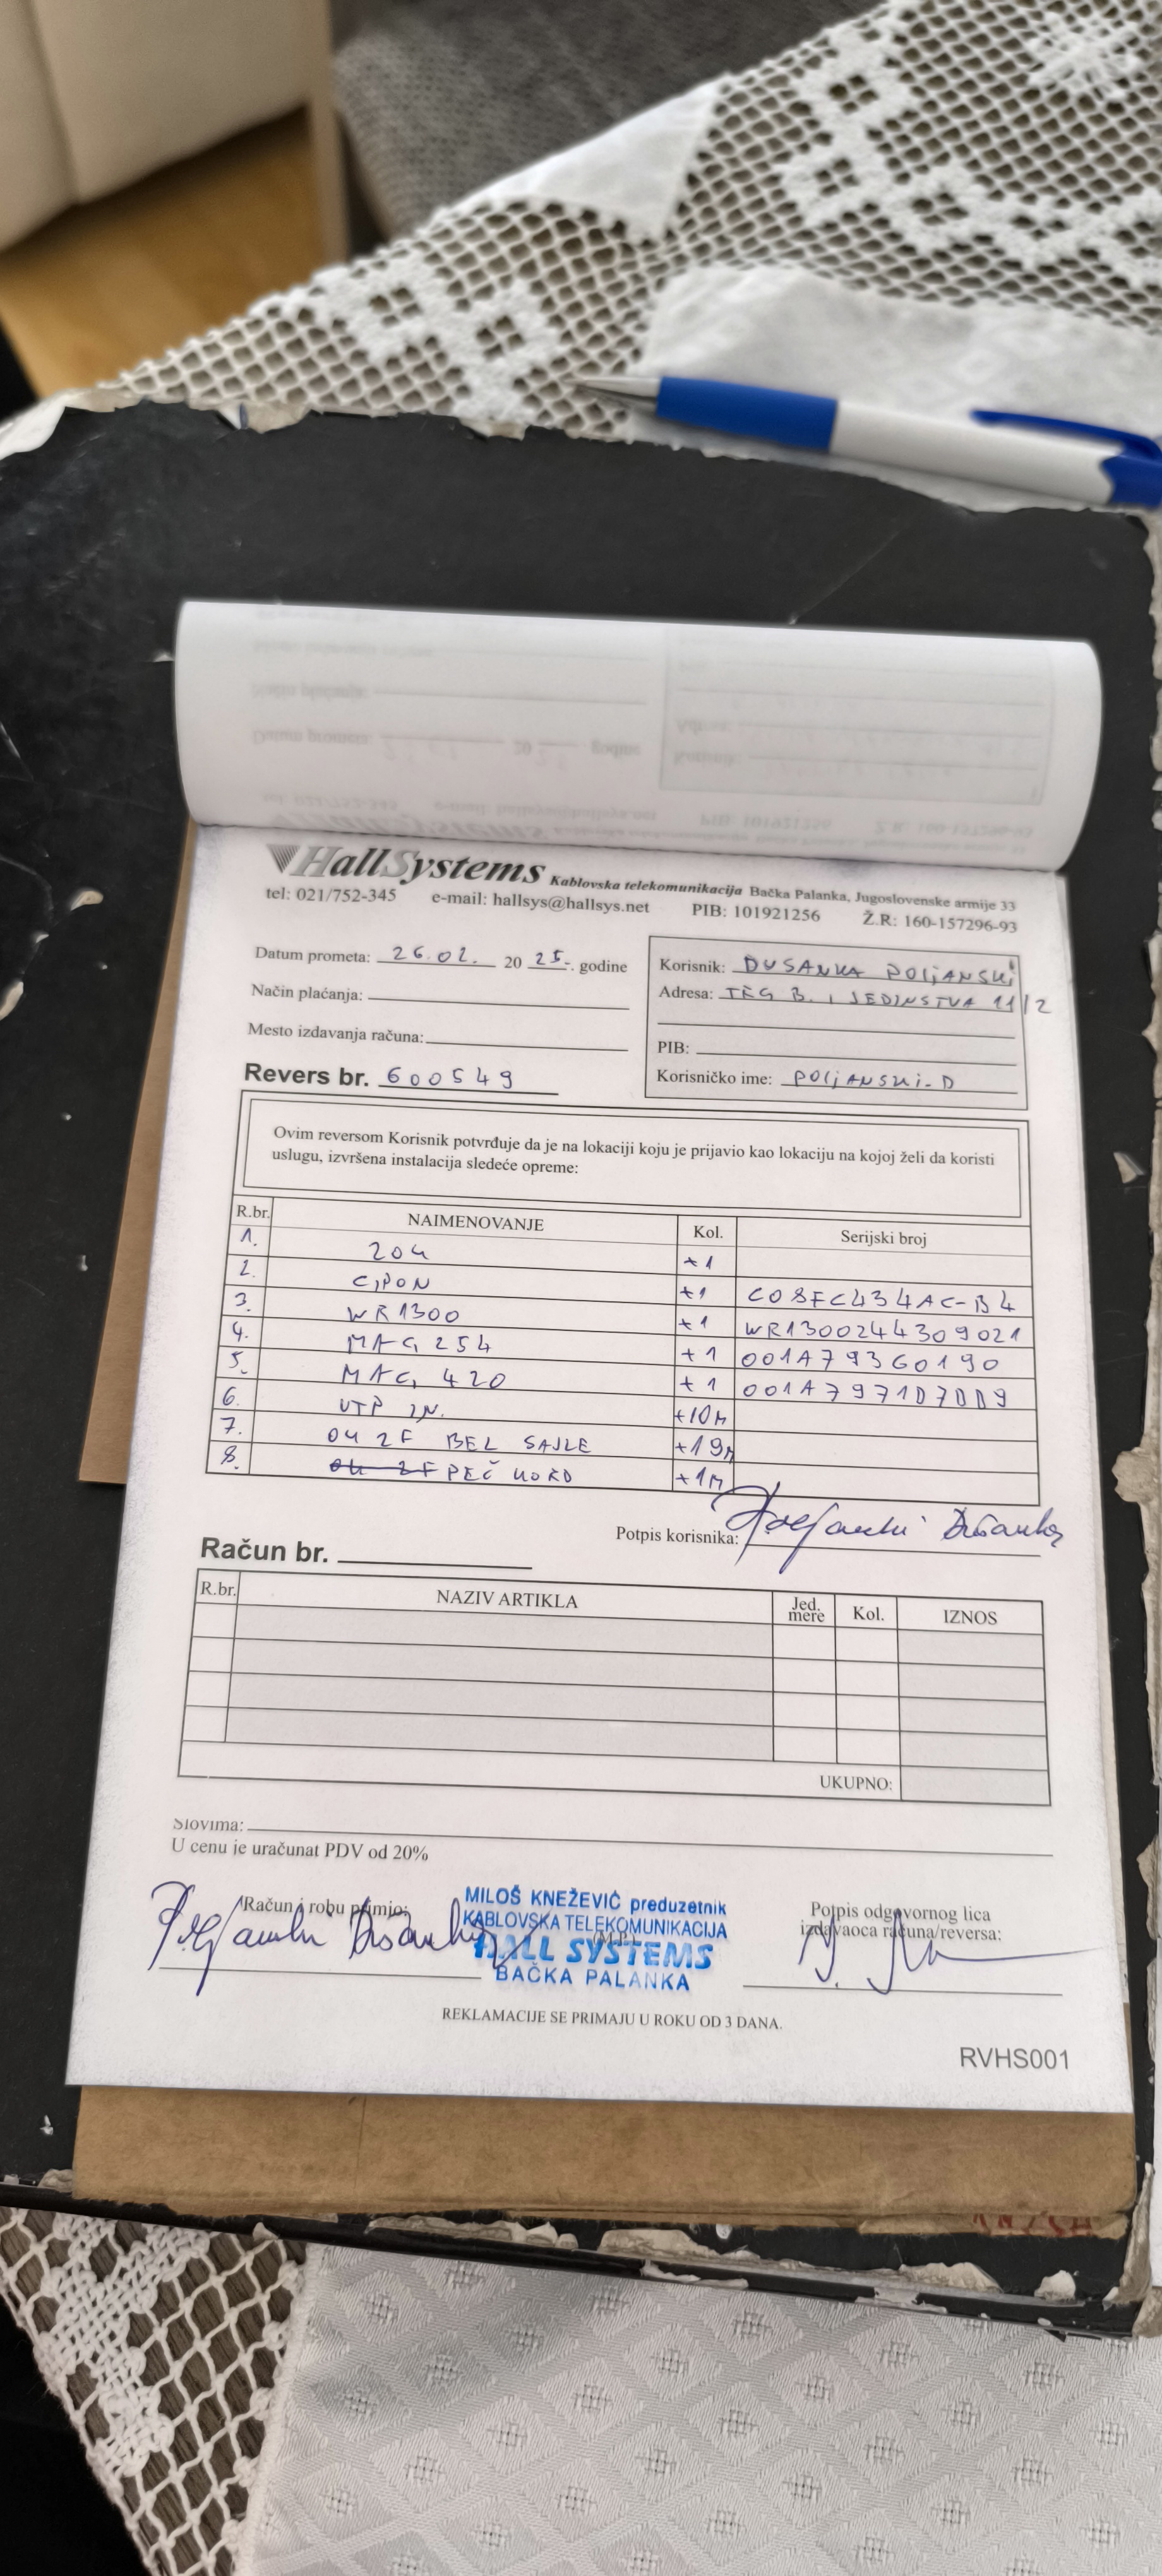 HallSystems Kablovska telekomunikacija Bačka Palanka, Jugoslovenske armije 33
tel: 021/752-345 e-mail: hallsys@hallsys.net PIB: 101921256 Ž.R: 160-157296-93
Datum prometa: 26.02. 20 25. godine
Način plaćanja:
Mesto izdavanja računa:
Revers br. 600549
Korisnik: DUSANKA POLJANSKI
Adresa: TRG B. I JEDINSTVA 11/2
PIB:
Korisničko ime: POLJANSKI-D
Ovim reversom Korisnik potvrđuje da je na lokaciji koju je prijavio kao lokaciju na kojoj želi da koristi
uslugu, izvršena instalacija sledeće opreme:
R.br. NAIMENOVANJE Kol. Serijski broj
1. 204 +1
2. CIPON +1 C08FC434AC-B4
3. WR1300 +1 WR1300244309021
4. MAG 254 +1 001A79360190
5. MAG 420 +1 001A7971D7DD9
6. UTP IN. +10M
7. OK 2F BEL SAJLE +19M
8. PEČ KORD +1M
Potpis korisnika: Poljanski Dušanka
Račun br.
R.br. NAZIV ARTIKLA Jed. mere Kol. IZNOS
UKUPNO:
Slovima:
U cenu je uračunat PDV od 20%
Račun i robu primio:
Poljanski Dušanka
MILOŠ KNEŽEVIĆ preduzetnik
KABLOVSKA TELEKOMUNIKACIJA
(M.P.)
HALL SYSTEMS
BAČKA PALANKA
Potpis odgovornog lica
izdavaoca računa/reversa:
REKLAMACIJE SE PRIMAJU U ROKU OD 3 DANA.
RVHS001